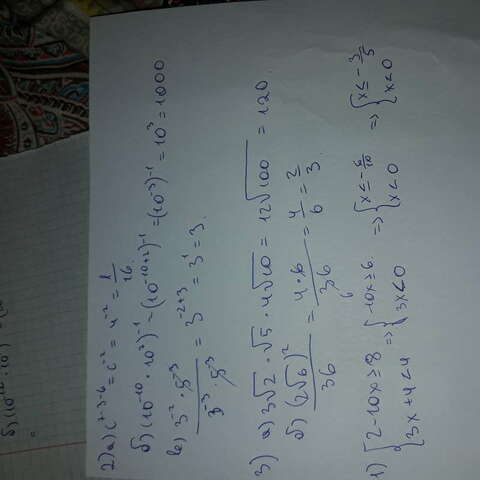 б) (10⁻¹² · 10
=
2) а) c⁷⁻³⁻⁶ = c⁻² = 4⁻² = 1/16.
б) (10⁻¹⁰ · 10⁷)⁻¹ = (10⁻¹⁰⁺²)⁻¹ = (10⁻³)⁻¹ = 10³ = 1000
в) (3⁻² · 5⁻³)/(3⁻³ · 5⁻³) = 3⁻²⁺³ = 3¹ = 3.
3) а) 3√2 · √5 · 4√10 = 12√100 = 120.
б) (2√6)²/36 = (4·6)/36 = 4/6 = 2/3.
6
1) {2-10x≥8 => {-10x≥6 => {x≤-6/10 => {x≤-3/5
{3x+4<4 {3x<0 {x<0 {x<0